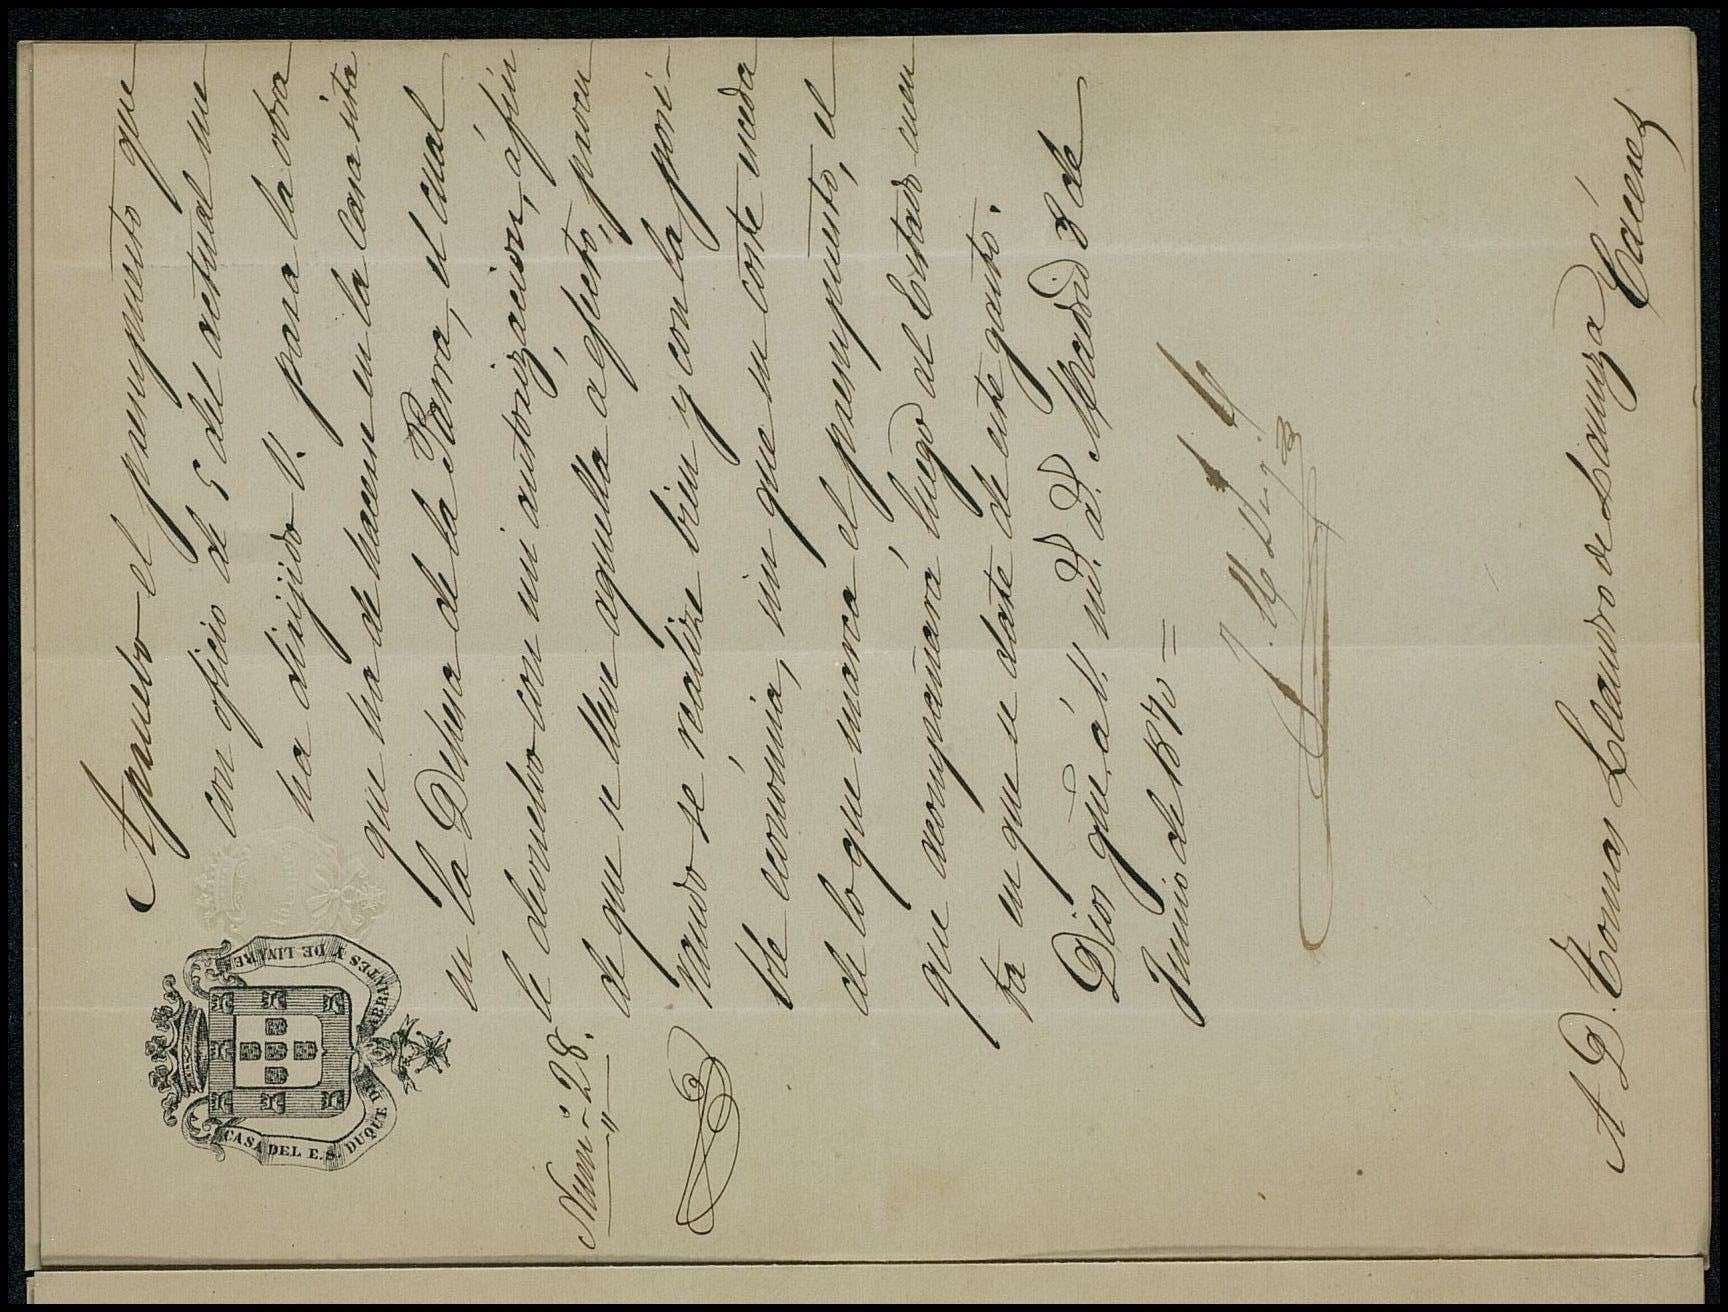 CASA DEL E.S. DUQUE DE ABRANTES Y DE LINARES
Num.º 28.
Apruebo el presupuesto que
con oficio de 5 del actual me
ha dirijido V. para la obra
que ha de hacerse en la casa sita
en la Dehesa de la Parra, el cual
le devuelvo con mi autorización, á fin
de que se lleve aquella a efecto, procu
rando se realize bien y con la posi-
ble económia, sin que su coste esceda
de lo que marca el presupuesto, el
que acompañará luego al Estado ó cuen
ta en que se date de este gasto.
Dios gũe. á V. m.s a.s Madrid 8 de
Junio de 1870 =
A D. Tomas Claudio de Lanuza Cáceres